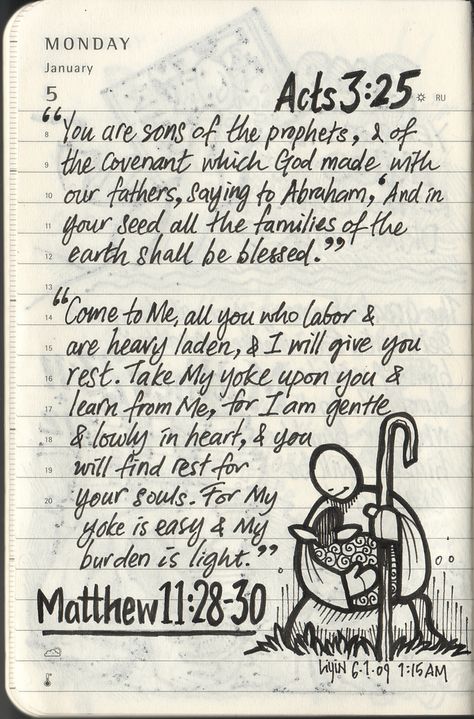 MONDAY
January
5
Acts 3:25
RU
8
"You are sons of the prophets, & of
9
the covenant which God made with
10
our fathers, saying to Abraham, 'And in
11
your seed all the families of the
12
earth shall be blessed."
13
14
"Come to Me, all you who labor &
15
are heavy laden, & I will give you
16
rest. Take My yoke upon you &
17
learn from Me, for I am gentle
18
& lowly in heart, & you
19
will find rest for
20
your souls. For My
yoke is easy & My
burden is light."
Matthew 11:28-30
Liyin 6.1.09 1:15AM